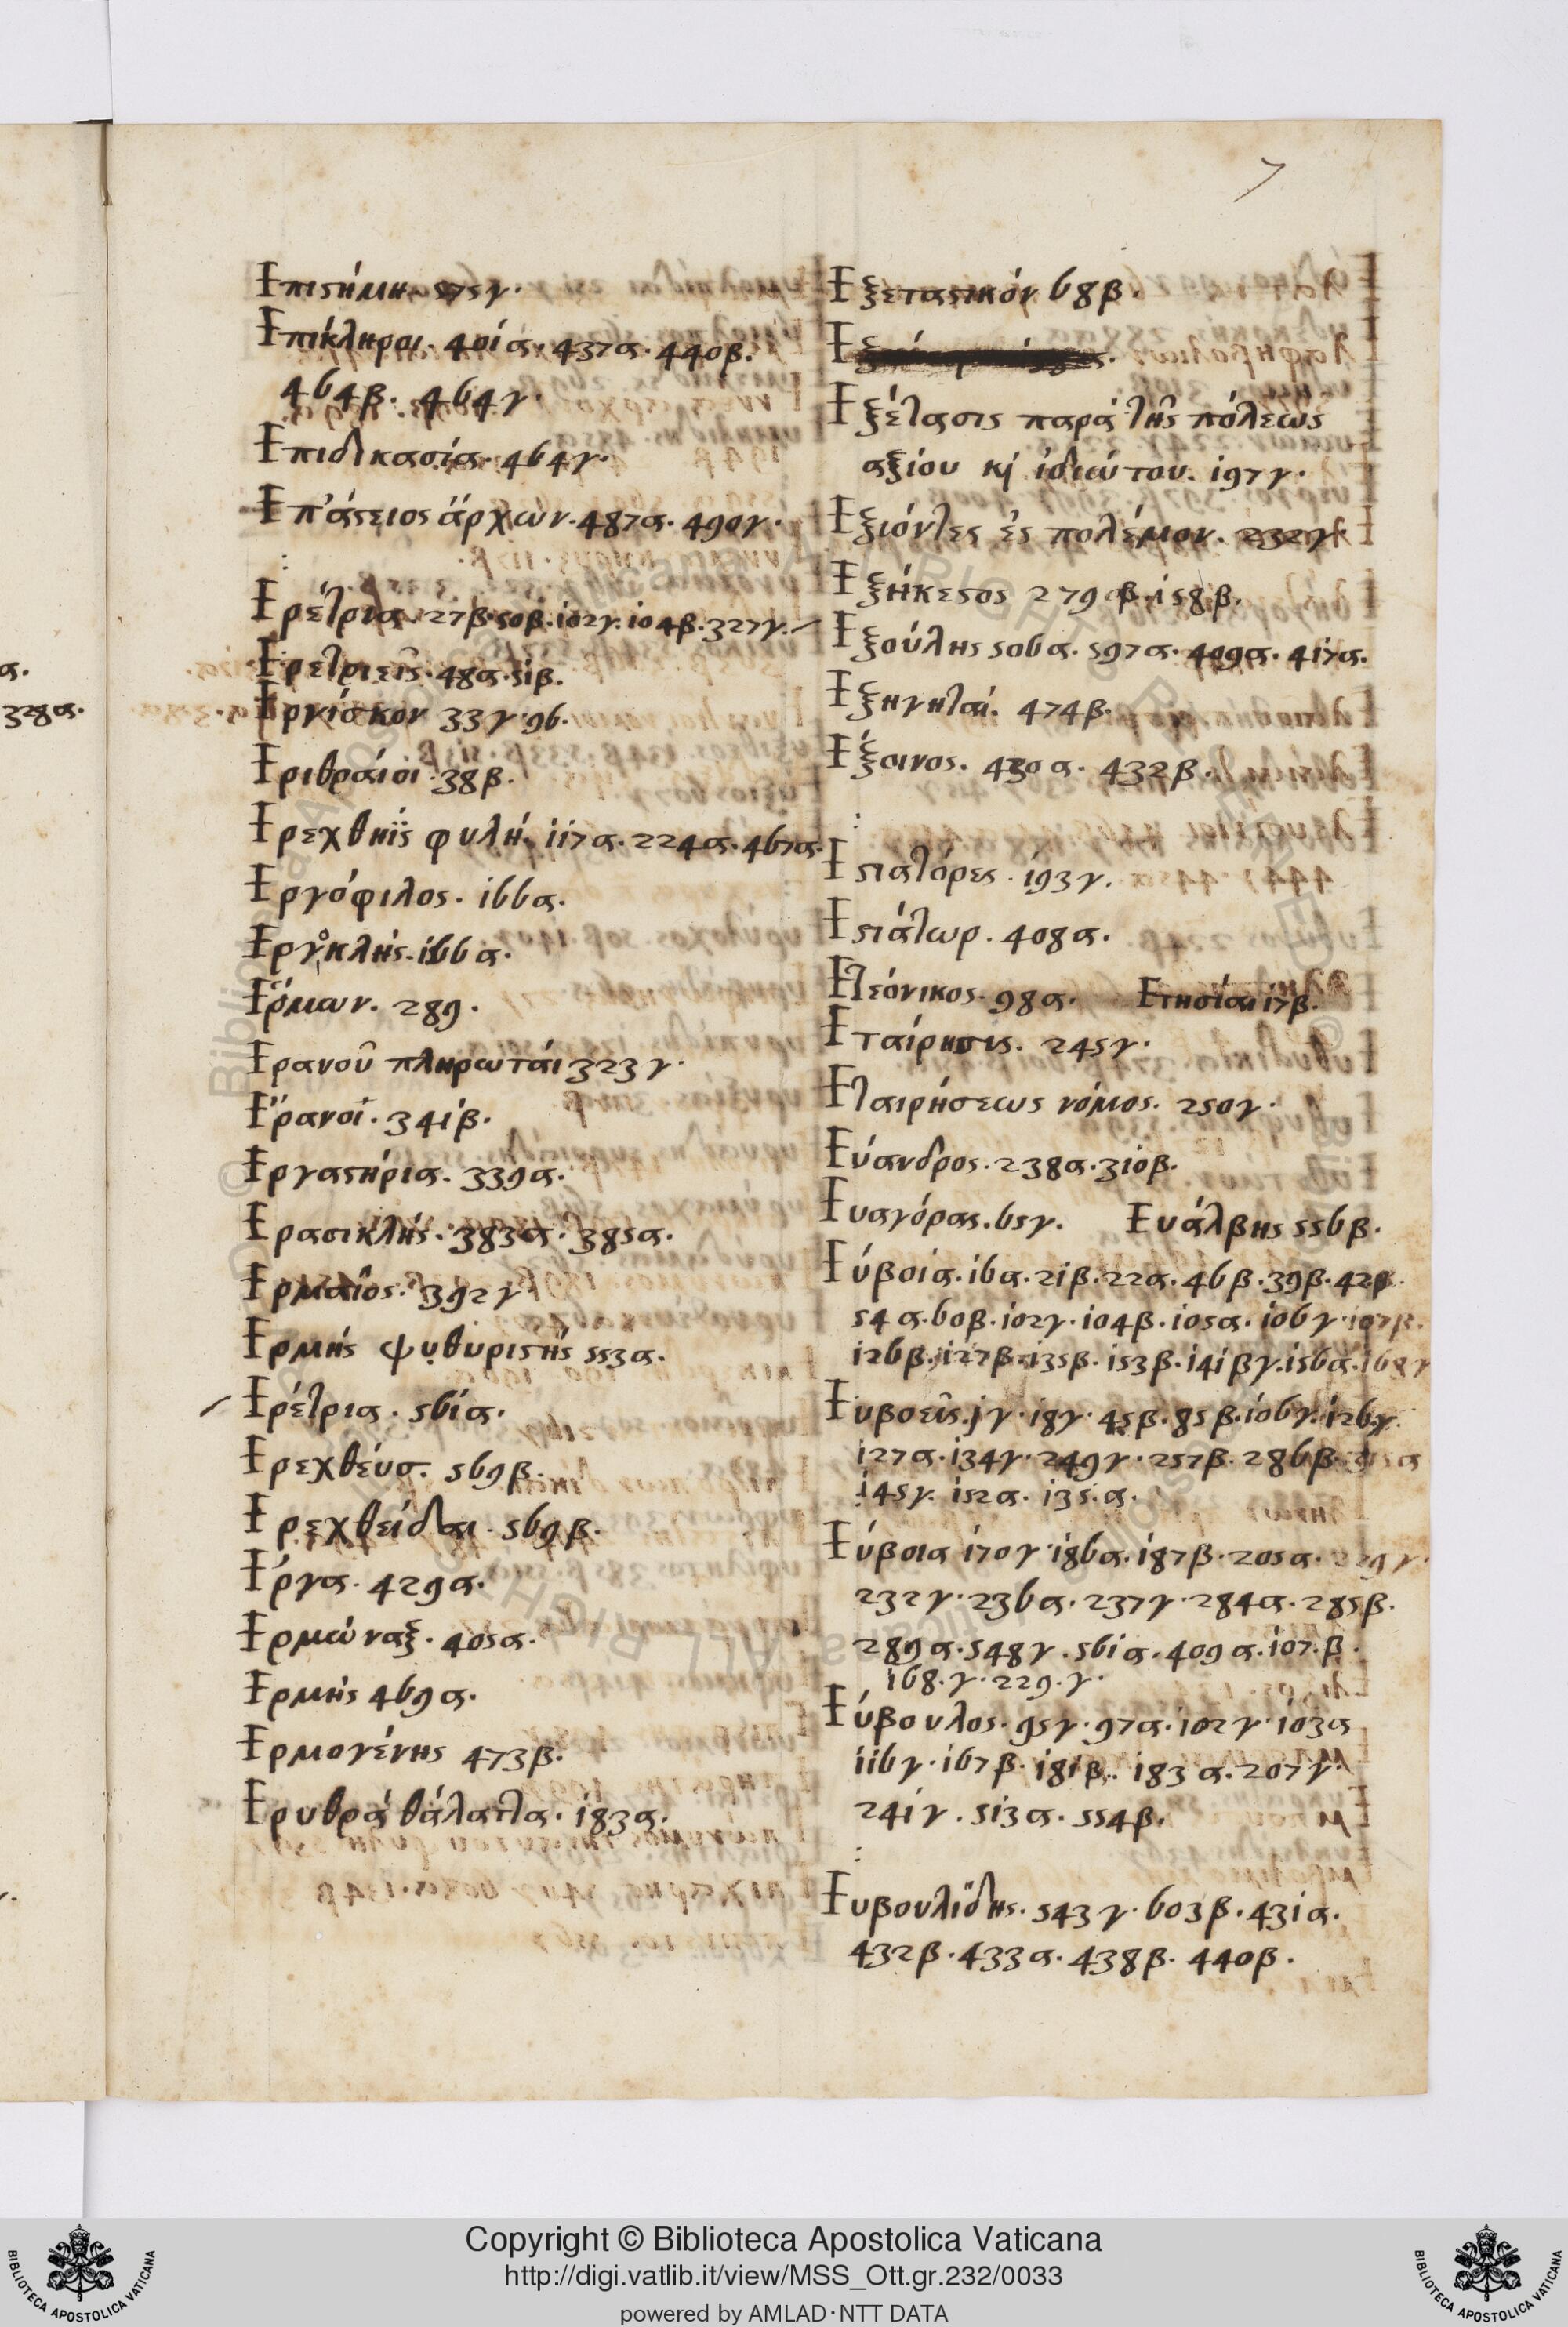 7
Επιστήμη 575γ.
Επίκληροι. 401α. 437α. 440β.
464β. 464γ.
Επιδικασία. 464γ.
Επ' άστειος άρχων. 487α. 490γ.
Ερέτρια. 27β. 50β. 102γ. 104β. 327γ.
Ερετριείς. 48α. 51β.
Εργίσκον 33γ. 96.
Εριθραίοι. 38β.
Ερεχθηίς φυλή. 117α. 224α. 467α.
Εργόφιλος. 166α.
Εργοκλής. 166α.
Ερμων. 289.
Ερανού πληρωτάι 323γ.
Ερανοί. 341β.
Εργαστήρια. 339α.
Ερασικλής. 383α. 385α.
Ερμαίος. 392γ
Ερμής ψυθυριστής 553α.
Ερέτρια. 561α.
Ερεχθέυσ. 569β.
Ερεχθείδαι. 569β.
Εργα. 429α.
Ερμώναξ. 405α.
Ερμής 469α.
Ερμογένης 473β.
Ερυθρά θάλαττα. 183α.
Εξεταστικόν 68β.
Εξέτασις παρά της πόλεως
αξίου κ ιδιώτου. 197γ.
Εξιόντες ές πολέμον. 232γ
Εξήκεστος 279 β. 158β.
Εξούλης 506α. 597α. 409α. 417α.
Εξηγηταί. 474β.
Εξοινος. 430α. 432β.
Εστιατόρες. 193γ.
Εστιάτωρ. 408α.
Ετεόνικος. 98α. Ετησίαι 17β.
Εταίρησις. 245γ.
Εταιρήσεως νόμος. 250γ.
Εύανδρος. 238α. 310β.
Ευαγόρας. 65γ. Ευάλβης 556β.
Εύβοια. 16α. 21β. 22α. 46β. 39β. 42β.
54α. 60β. 102γ. 104β. 105α. 106γ. 107β.
126β. 127β. 135β. 153β. 141βγ. 156α. 168γ
Ευβοείς. 1γ. 18γ. 45β. 85β. 106γ. 126γ.
127α. 134γ. 249γ. 257β. 286β.
145γ. 152α. 135.α.
Εύβοια 170γ. 186α. 187β. 205α. 229γ.
232γ. 236α. 237γ. 284α. 285β.
289α. 548γ. 561α. 409α. 107.β.
168.γ. 229.γ.
Εύβουλος. 95γ. 97α. 102γ. 103α
116γ. 167β. 181β. 183α. 207γ.
241γ. 513α. 554β.
Ευβουλίδης. 543γ. 603β. 431α.
432β. 433α. 438β. 440β.
α.
328α.
Copyright © Biblioteca Apostolica Vaticana
http://digi.vatlib.it/view/MSS_Ott.gr.232/0033
powered by AMLAD·NTT DATA
BIBLIOTECA APOSTOLICA VATICANA
BIBLIOTECA APOSTOLICA VATICANA